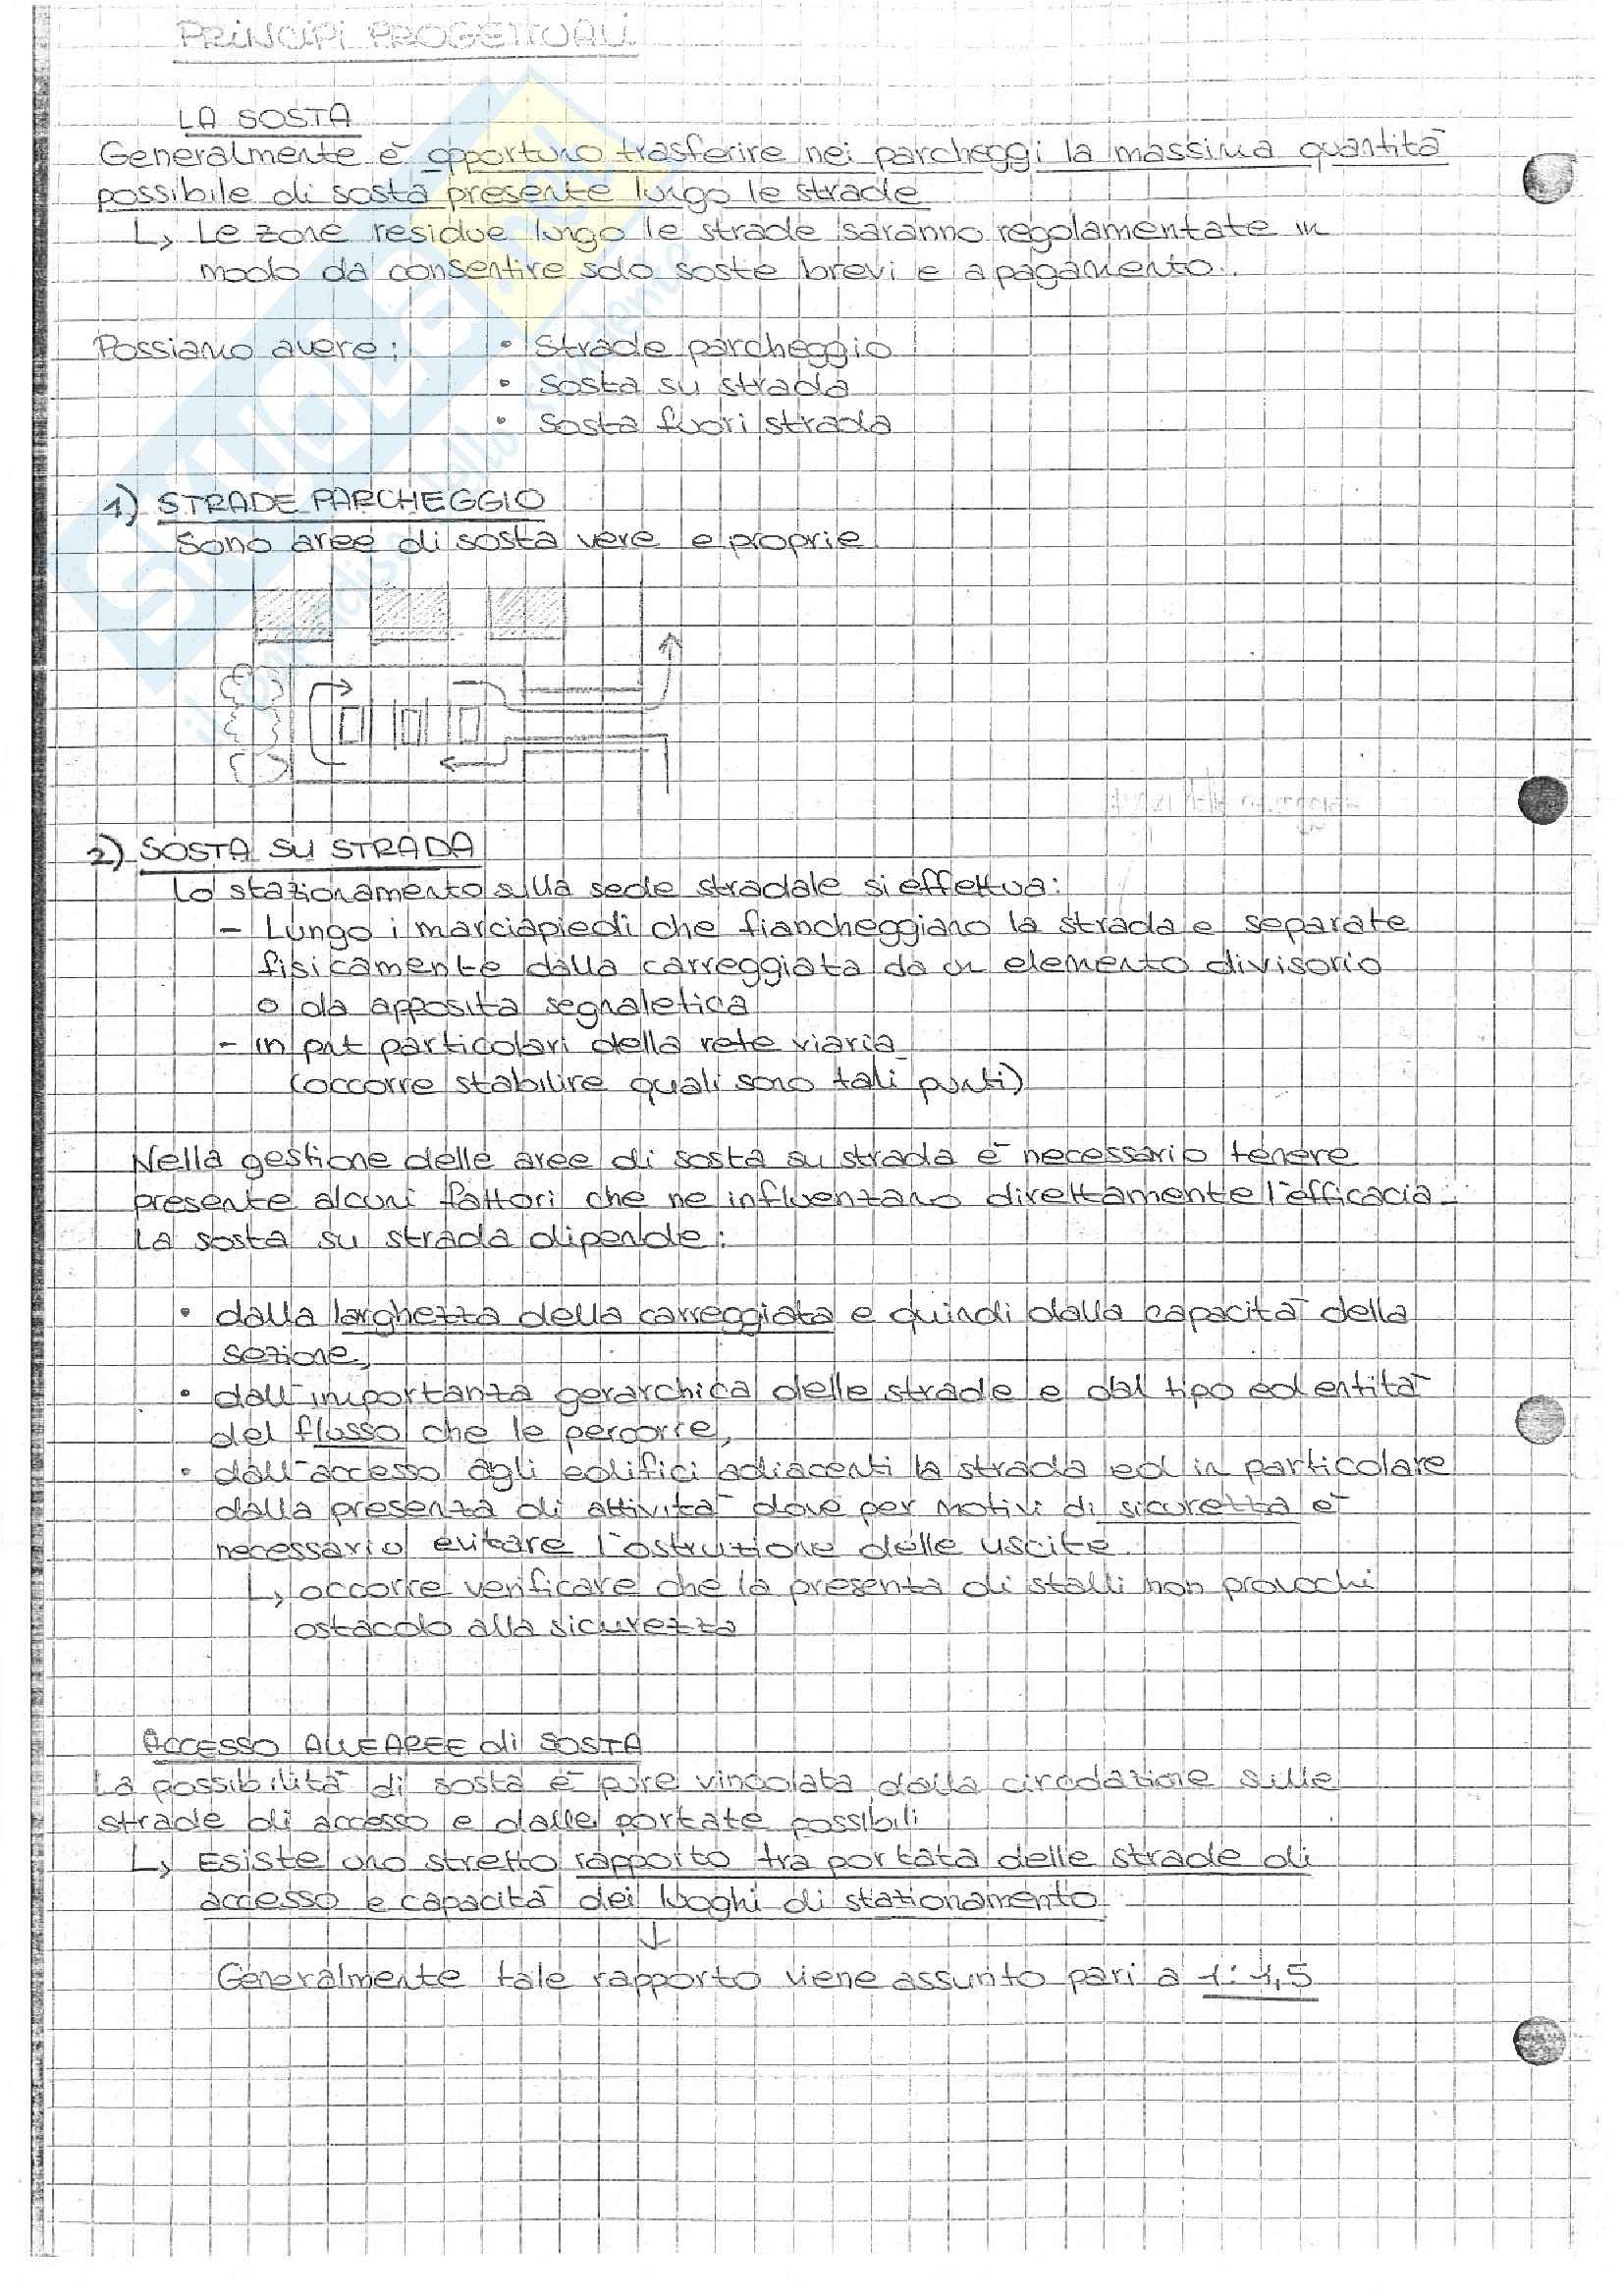 PRINCIPI PROGETTUALI
LA SOSTA
Generalmente è opportuno trasferire nei parcheggi la massima quantità
possibile di sosta presente lungo le strade
↳ Le zone residue lungo le strade saranno regolamentate in
modo da consentire solo soste brevi e a pagamento.
Possiamo avere: • Strade parcheggio
• Sosta su strada
• Sosta fuori strada
1) STRADE PARCHEGGIO
Sono aree di sosta vere e proprie
2) SOSTA SU STRADA
Lo stazionamento sulla sede stradale si effettua:
- Lungo i marciapiedi che fiancheggiano la strada e separate
fisicamente dalla carreggiata da un elemento divisorio
o da apposita segnaletica
- in pnt particolari della rete viaria
(occorre stabilire quali sono tali punti)
Nella gestione delle aree di sosta su strada è necessario tenere
presente alcuni fattori che ne influenzano direttamente l'efficacia.
La sosta su strada dipende:
• dalla larghezza della carreggiata e quindi dalla capacità della
sezione,
• dall'importanza gerarchica delle strade e dal tipo ed entità
del flusso che le percorre,
• dall'accesso agli edifici adiacenti la strada ed in particolare
dalla presenza di attività dove per motivi di sicurezza è
necessario evitare l'ostruzione delle uscite.
↳ occorre verificare che la presenza di stalli non provochi
ostacolo alla sicurezza
ACCESSO ALLE AREE di SOSTA
La possibilità di sosta è pure vincolata dalla circolazione sulle
strade di accesso e dalle portate possibili
↳ Esiste uno stretto rapporto tra portata delle strade di
accesso e capacità dei luoghi di stazionamento
↓
Generalmente tale rapporto viene assunto pari a 1:1,5